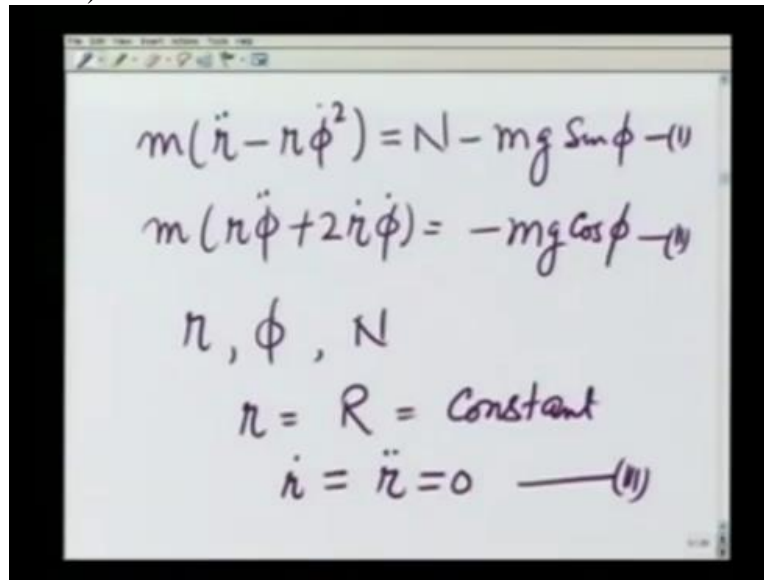 m(r̈ - rφ̇²) = N - mg Sinφ -(I)
m(rφ̈ + 2ṙφ̇) = -mg Cosφ -(II)
r, φ, N
r = R = Constant
ṙ = r̈ = 0 —(III)